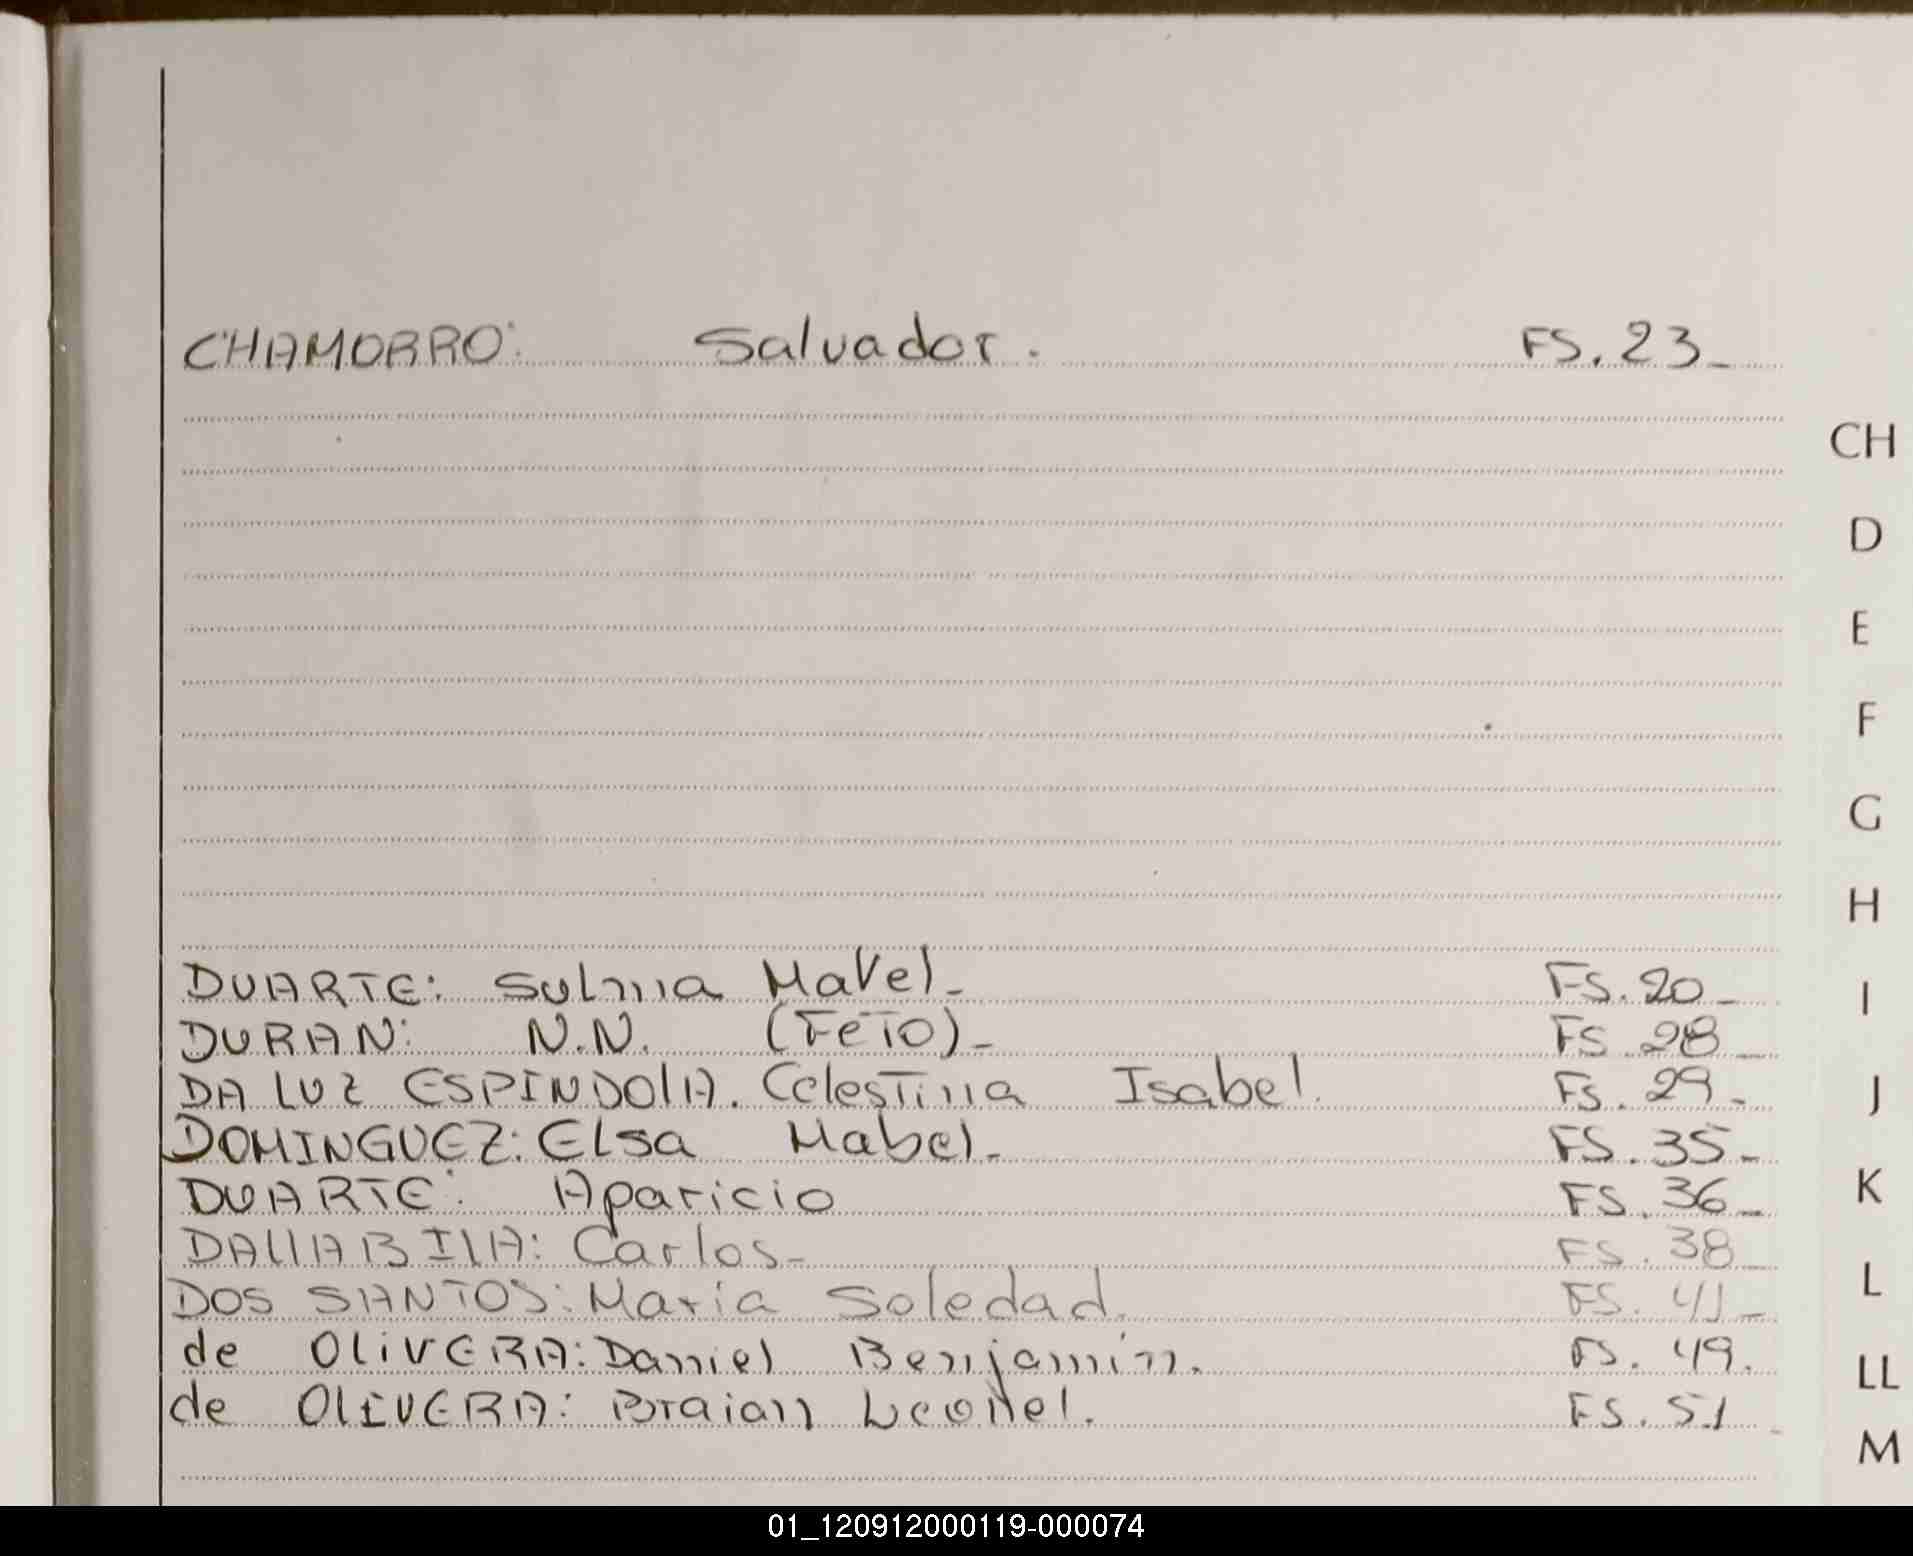 CHAMORRO: Salvador. FS. 23_
CH
D
E
F
G
H
DUARTE: Sulma Mavel_ FS. 20_
I
DURAN: N.N. (FETO)_ FS 28_
DA LUZ ESPINDOlA. Celestina Isabel. FS. 29_
J
DOMINGUEZ: Elsa Mabel_ FS. 35_
DUARTE: Aparicio FS. 36_
K
DAllABIlA: Carlos_ FS. 38_
DOS SANTOS: Maria Soledad. FS. 41_
L
de OliVERA: Daniel Benjamín. FS. 49.
LL
de OlIVERA: Braian Leonel. FS. 51_
M
01_120912000119-000074